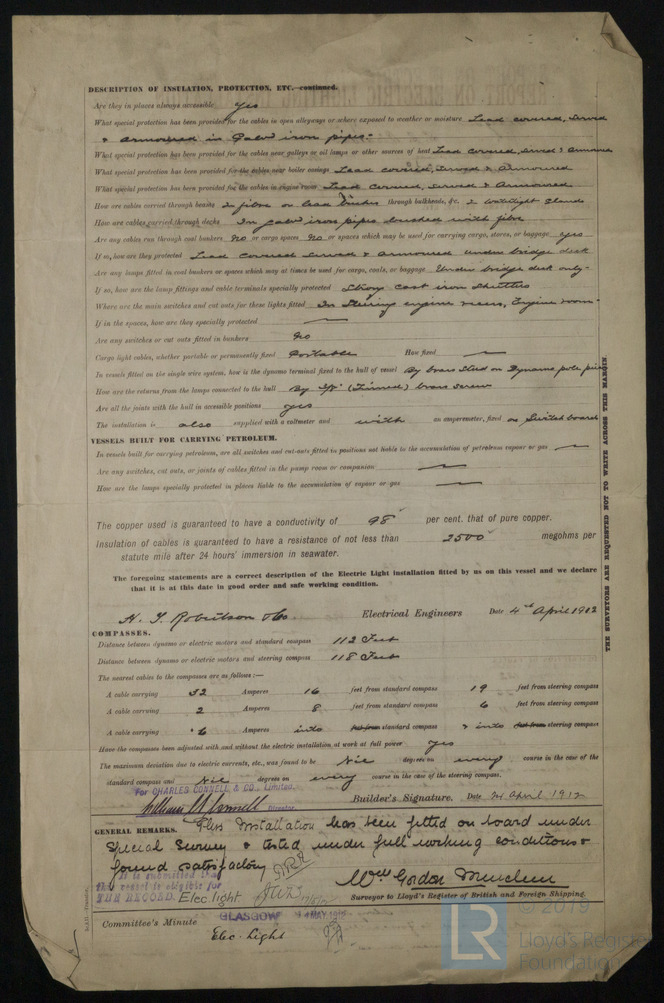 DESCRIPTION OF INSULATION, PROTECTION, ETC.—continued.
Are they in places always accessible yes
What special protection has been provided for the cables in open alleyways or where exposed to weather or moisture Lead covered, served
& armoured in Galvd iron pipes.
What special protection has been provided for the cables near galleys or oil lamps or other sources of heat Lead covered, served & armoured
What special protection has been provided for the cables near boiler casings Lead covered, served & armoured
What special protection has been provided for the cables in engine room Lead covered, served & Armoured
How are cables carried through beams in fibre or lead bushes through bulkheads, &c. in Watertight Glands
How are cables carried through decks In galvd iron pipes bushed with fibre
Are any cables run through coal bunkers No or cargo spaces No or spaces which may be used for carrying cargo, stores, or baggage yes
If so, how are they protected Lead covered served & armoured under bridge deck
Are any lamps fitted in coal bunkers or spaces which may at times be used for cargo, coals, or baggage Under bridge deck only.
If so, how are the lamp fittings and cable terminals specially protected Strong cast iron shutters
Where are the main switches and cut outs for these lights fitted In Steering engine recess, Engine room.
If in the spaces, how are they specially protected —
Are any switches or cut outs fitted in bunkers No
Cargo light cables, whether portable or permanently fixed Portable How fixed —
In vessels fitted on the single wire system, how is the dynamo terminal fixed to the hull of vessel By brass stud on Dynamo pole piece
How are the returns from the lamps connected to the hull By (Tinned) brass screw
Are all the joints with the hull in accessible positions yes
The installation is also supplied with a voltmeter and with an amperemeter, fixed on Switch board
VESSELS BUILT FOR CARRYING PETROLEUM.
In vessels built for carrying petroleum, are all switches and cut-outs fitted in positions not liable to the accumulation of petroleum vapour or gas —
Are any switches, cut outs, or joints of cables fitted in the pump room or companion —
How are the lamps specially protected in places liable to the accumulation of vapour or gas —
The copper used is guaranteed to have a conductivity of 98 per cent. that of pure copper.
Insulation of cables is guaranteed to have a resistance of not less than 2500 megohms per
statute mile after 24 hours' immersion in seawater.
The foregoing statements are a correct description of the Electric Light installation fitted by us on this vessel and we declare
that it is at this date in good order and safe working condition.
Robertson & Co Electrical Engineers Date 4th April 1912
COMPASSES.
Distance between dynamo or electric motors and standard compass 112 Feet
Distance between dynamo or electric motors and steering compass 118 Feet
The nearest cables to the compasses are as follows:—
A cable carrying 52 Amperes 16 feet from standard compass 19 feet from steering compass
A cable carrying 2 Amperes 8 feet from standard compass 6 feet from steering compass
A cable carrying .6 Amperes into feet from standard compass & into feet from steering compass
Have the compasses been adjusted with and without the electric installation at work at full power yes
The maximum deviation due to electric currents, etc., was found to be Nil degrees on every course in the case of the
standard compass and Nil degrees on every course in the case of the steering compass.
For CHARLES CONNELL & CO., Limited.
William Connell Director. Builder's Signature. Date 24 April 1912
GENERAL REMARKS. This Installation has been fitted on board under
Special Survey & tested under full working conditions &
found satisfactory
It is submitted that
the vessel is eligible for
THE RECORD. Elec light
Wm Gordon
Surveyor to Lloyd's Register of British and Foreign Shipping.
Committee's Minute GLASGOW MAY 1912
Elec. Light
THE SURVEYORS ARE REQUESTED NOT TO WRITE ACROSS THIS MARGIN
© 2019
LR
Lloyd's Register
Foundation